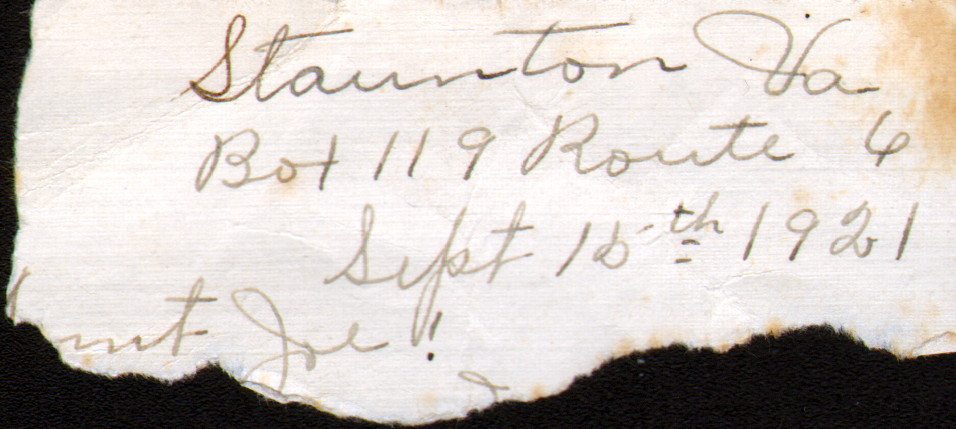 Staunton Va
Box 119 Route 6
Sept 15th 1921
unt Joe!